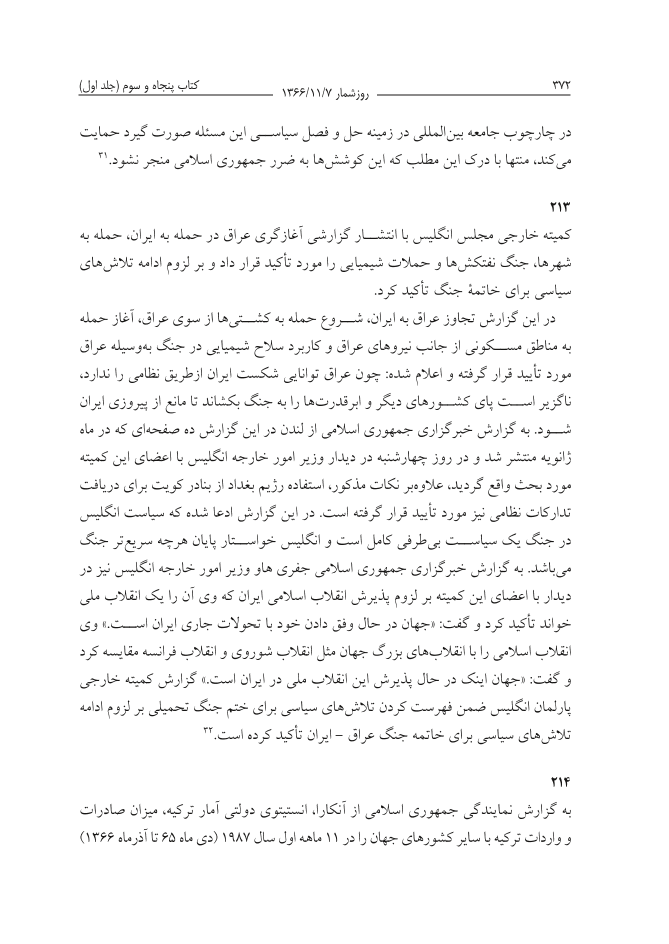 ۳۷۲ روزشمار ۱۳۶۶/۱۱/۷ کتاب پنجاه و سوم (جلد اول)
در چارچوب جامعه بین‌المللی در زمینه حل و فصل سیاسی این مسئله صورت گیرد حمایت
می‌کند، منتها با درک این مطلب که این کوشش‌ها به ضرر جمهوری اسلامی منجر نشود.۳۱
۲۱۳
کمیته خارجی مجلس انگلیس با انتشار گزارشی آغازگری عراق در حمله به ایران، حمله به
شهرها، جنگ نفتکش‌ها و حملات شیمیایی را مورد تأکید قرار داد و بر لزوم ادامه تلاش‌های
سیاسی برای خاتمهٔ جنگ تأکید کرد.
در این گزارش تجاوز عراق به ایران، شروع حمله به کشتی‌ها از سوی عراق، آغاز حمله
به مناطق مسکونی از جانب نیروهای عراق و کاربرد سلاح شیمیایی در جنگ به‌وسیله عراق
مورد تأیید قرار گرفته و اعلام شده: چون عراق توانایی شکست ایران ازطریق نظامی را ندارد،
ناگزیر است پای کشورهای دیگر و ابرقدرت‌ها را به جنگ بکشاند تا مانع از پیروزی ایران
شود. به گزارش خبرگزاری جمهوری اسلامی از لندن در این گزارش ده صفحه‌ای که در ماه
ژانویه منتشر شد و در روز چهارشنبه در دیدار وزیر امور خارجه انگلیس با اعضای این کمیته
مورد بحث واقع گردید، علاوه‌بر نکات مذکور، استفاده رژیم بغداد از بنادر کویت برای دریافت
تدارکات نظامی نیز مورد تأیید قرار گرفته است. در این گزارش ادعا شده که سیاست انگلیس
در جنگ یک سیاست بی‌طرفی کامل است و انگلیس خواستار پایان هرچه سریع‌تر جنگ
می‌باشد. به گزارش خبرگزاری جمهوری اسلامی جفری هاو وزیر امور خارجه انگلیس نیز در
دیدار با اعضای این کمیته بر لزوم پذیرش انقلاب اسلامی ایران که وی آن را یک انقلاب ملی
خواند تأکید کرد و گفت: «جهان در حال وفق دادن خود با تحولات جاری ایران است.» وی
انقلاب اسلامی را با انقلاب‌های بزرگ جهان مثل انقلاب شوروی و انقلاب فرانسه مقایسه کرد
و گفت: «جهان اینک در حال پذیرش این انقلاب ملی در ایران است.» گزارش کمیته خارجی
پارلمان انگلیس ضمن فهرست کردن تلاش‌های سیاسی برای ختم جنگ تحمیلی بر لزوم ادامه
تلاش‌های سیاسی برای خاتمه جنگ عراق – ایران تأکید کرده است.۳۲
۲۱۴
به گزارش نمایندگی جمهوری اسلامی از آنکارا، انستیتوی دولتی آمار ترکیه، میزان صادرات
و واردات ترکیه با سایر کشورهای جهان را در ۱۱ ماهه اول سال ۱۹۸۷ (دی ماه ۶۵ تا آذرماه ۱۳۶۶)